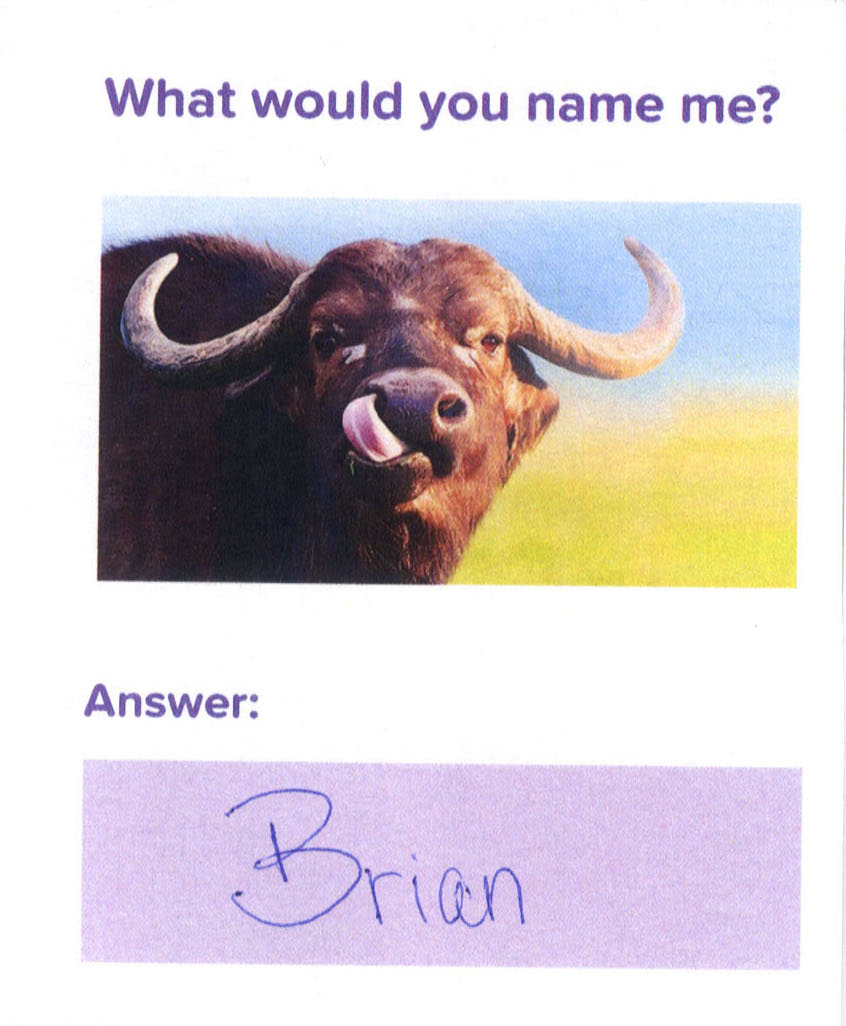 What would you name me?
Answer:
Brian